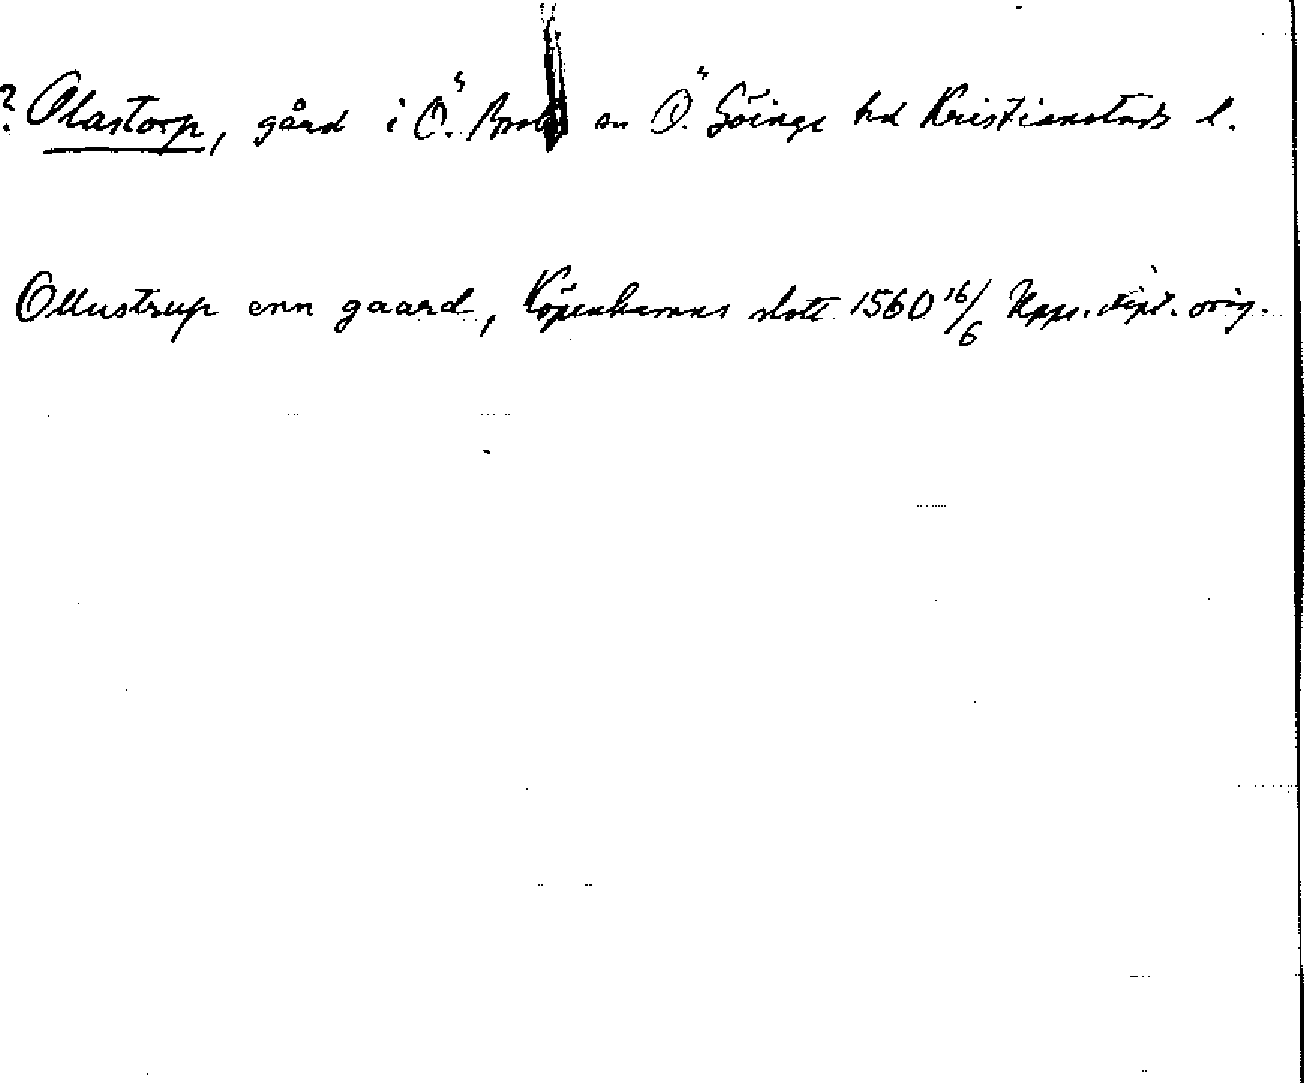 ? Olastorp, gård i Ö. Broby sn Ö. Göinge hd Kristianstads l.
Ollustrup enn gaard, Köpenhamns slott 1560 16/6 Upps. dipl. orig.